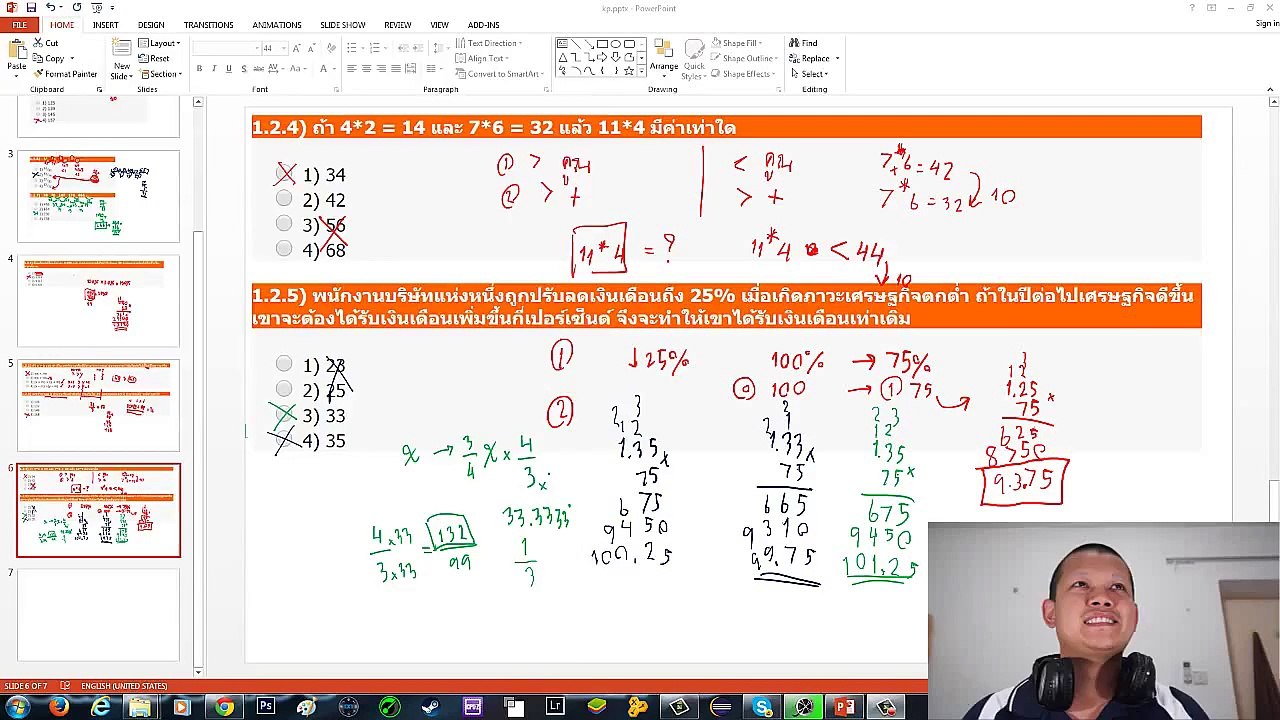 kp.pptx - PowerPoint
Sign in
FILE HOME INSERT DESIGN TRANSITIONS ANIMATIONS SLIDE SHOW REVIEW VIEW ADD-INS
Cut
Copy
Format Painter
Paste
Clipboard
New Slide
Layout
Reset
Section
Slides
44
Font
Text Direction
Align Text
Convert to SmartArt
Paragraph
Arrange
Quick Styles
Shape Fill
Shape Outline
Shape Effects
Drawing
Find
Replace
Select
Editing
3
4
5
6
7
1.2.4) ถ้า 4*2 = 14 และ 7*6 = 32 แล้ว 11*4 มีค่าเท่าใด
1) 34
2) 42
3) 56
4) 68
① > คูณ
② > +
< คูณ
> +
7 * 6 = 42
7 * 6 = 32
10
11*4 = ?
11*4 < 44
10
1.2.5) พนักงานบริษัทแห่งหนึ่งถูกปรับลดเงินเดือนถึง 25% เมื่อเกิดภาวะเศรษฐกิจตกต่ำ ถ้าในปีต่อไปเศรษฐกิจดีขึ้น
เขาจะต้องได้รับเงินเดือนเพิ่มขึ้นกี่เปอร์เซ็นต์ จึงจะทำให้เขาได้รับเงินเดือนเท่าเดิม
1) 23
2) 25
3) 33
4) 35
① ↓25% 100% → 75%
⓪ 100 → ① 75
②
x → 3/4 x × 4/3
4×33/3×33 = 132/99
33.3333
1/3
1.35 ×
75
675
9450
101.25
1.33 ×
75
665
9310
99.75
1.35
75 ×
675
9450
101.25
1.25 ×
75
625
8750
93.75
SLIDE 6 OF 7
ENGLISH (UNITED STATES)